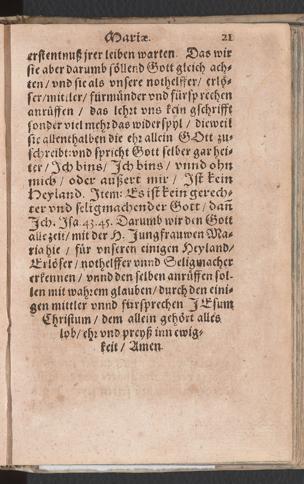 Mariæ. 21
erstentnuß jrer leiben warten. Das wir
sie aber darumb söllend Gott gleich ach-
ten / vnd sie als vnsere nothelffer / erlö-
ser / mittler / fürmünder vnd fürsprechen
anrüffen / das lehrt vns kein gschrifft
sonder viel mehr das widerspyl / dieweil
sie allenthalben die ehr allein GOtt zu-
schreibt: vnd spricht Gott selber gar hei-
ter / Jch bins / Jch bins / vnnd ohn
mich / oder aussert mir / Jst kein
Heyland. Jtem: Es ist kein gerech-
ter vnd seligmachender Gott / dañ
Jch. Jsa. 43. 45. Darumb wir den Gott
alle zeit / mit der H. Jungfrauwen Ma-
ria hie / für vnseren einigen Heyland /
Erlöser / nothelffer vnnd Seligmacher
erkennen / vnnd den selben anrüffen sol-
len mit wahrem glauben / durch den eini-
gen mittler vnnd fürsprechen JEsum
Christum / dem allein gehört alles
lob / ehr vnd preyß inn ewig-
keit / Amen